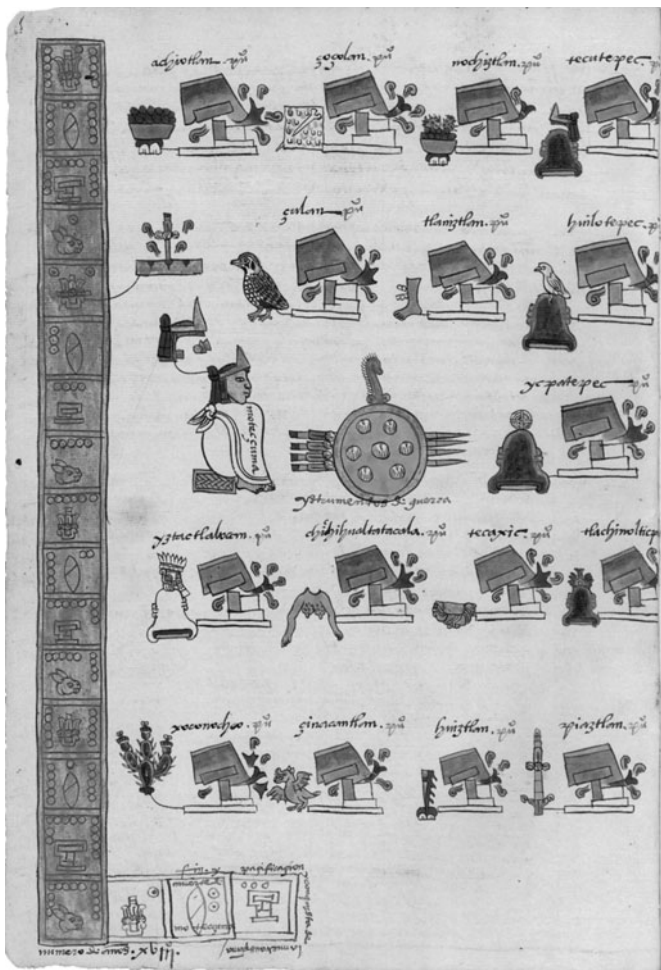 achiotlan. puº
çoçolan. puº
nochiztlan. puº
tecutepec. puº
çulan. puº
tlaniztlan. puº
huilotepec. pu
motecçuma
ycpatepec puº
ystrumentos de guerra
yztactlalocan. puº
chichihualtatacala. puº
tecaxic. puº
tlachinoltic
xoconochco. puº
çinacantlan. puº
huiztlan. puº
piaztlan. puº
fin y
muerte
pacificacion
numero de años. XVIII.